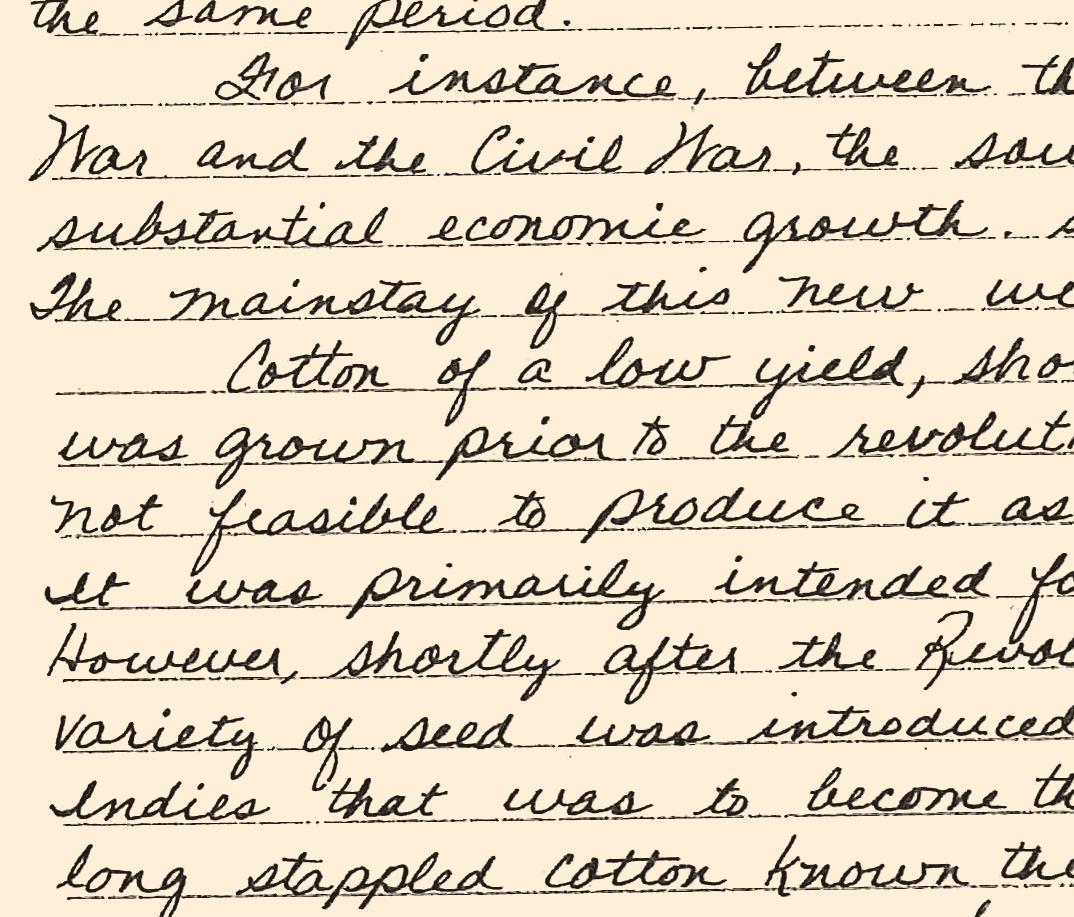 the same period.
For instance, between th
War and the Civil War, the sou
substantial economic growth. s
The mainstay of this new we
Cotton of a low yield, sho
was grown prior to the revolut
not feasible to produce it as
It was primarily intended fo
However, shortly after the Revol
variety of seed was introduced
Indies that was to become th
long stappled cotton known the